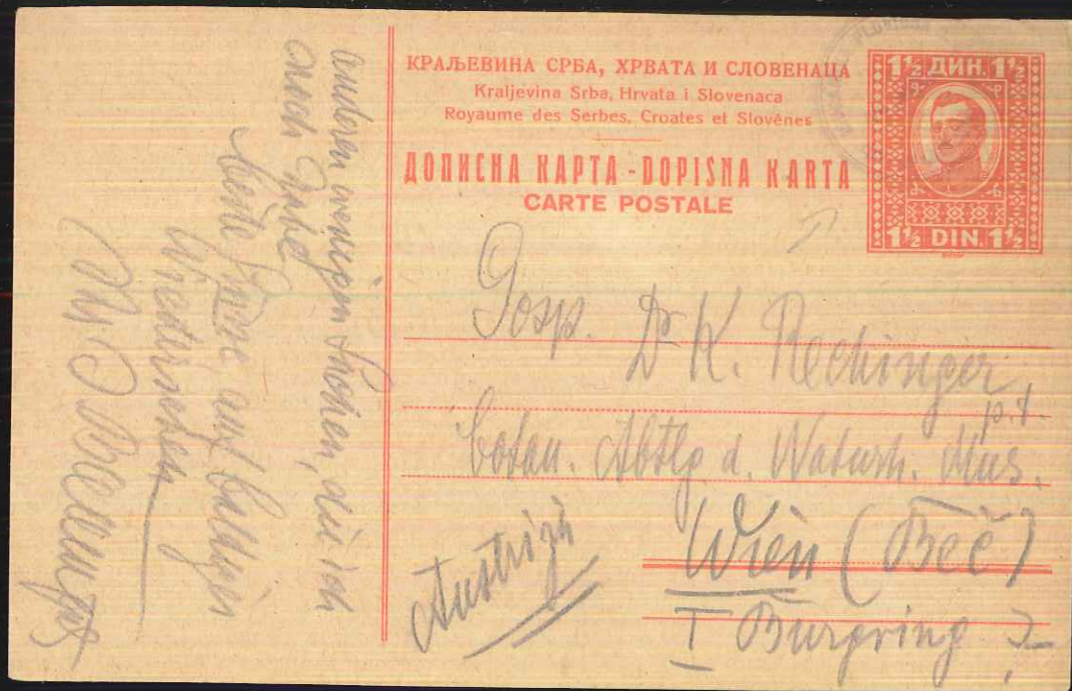 КРАЉЕВИНА СРБА, ХРВАТА И СЛОВЕНАЦА
Kraljevina Srba, Hrvata i Slovenaca
Royaume des Serbes, Croates et Slovènes
ДОПИСНА КАРТА - DOPISNA KARTA
CARTE POSTALE
1½ ДИН. 1½
1½ DIN. 1½
Gosp. Dr K. Rechinger
p. t.
botan. Abtlg d. Naturh. Mus.
Wien (Beč)
I Burgring 7
Austrija
anderen wenigen Sachen, die ich
noch habe
beste Grüsse, auf baldiges
Wiedersehen